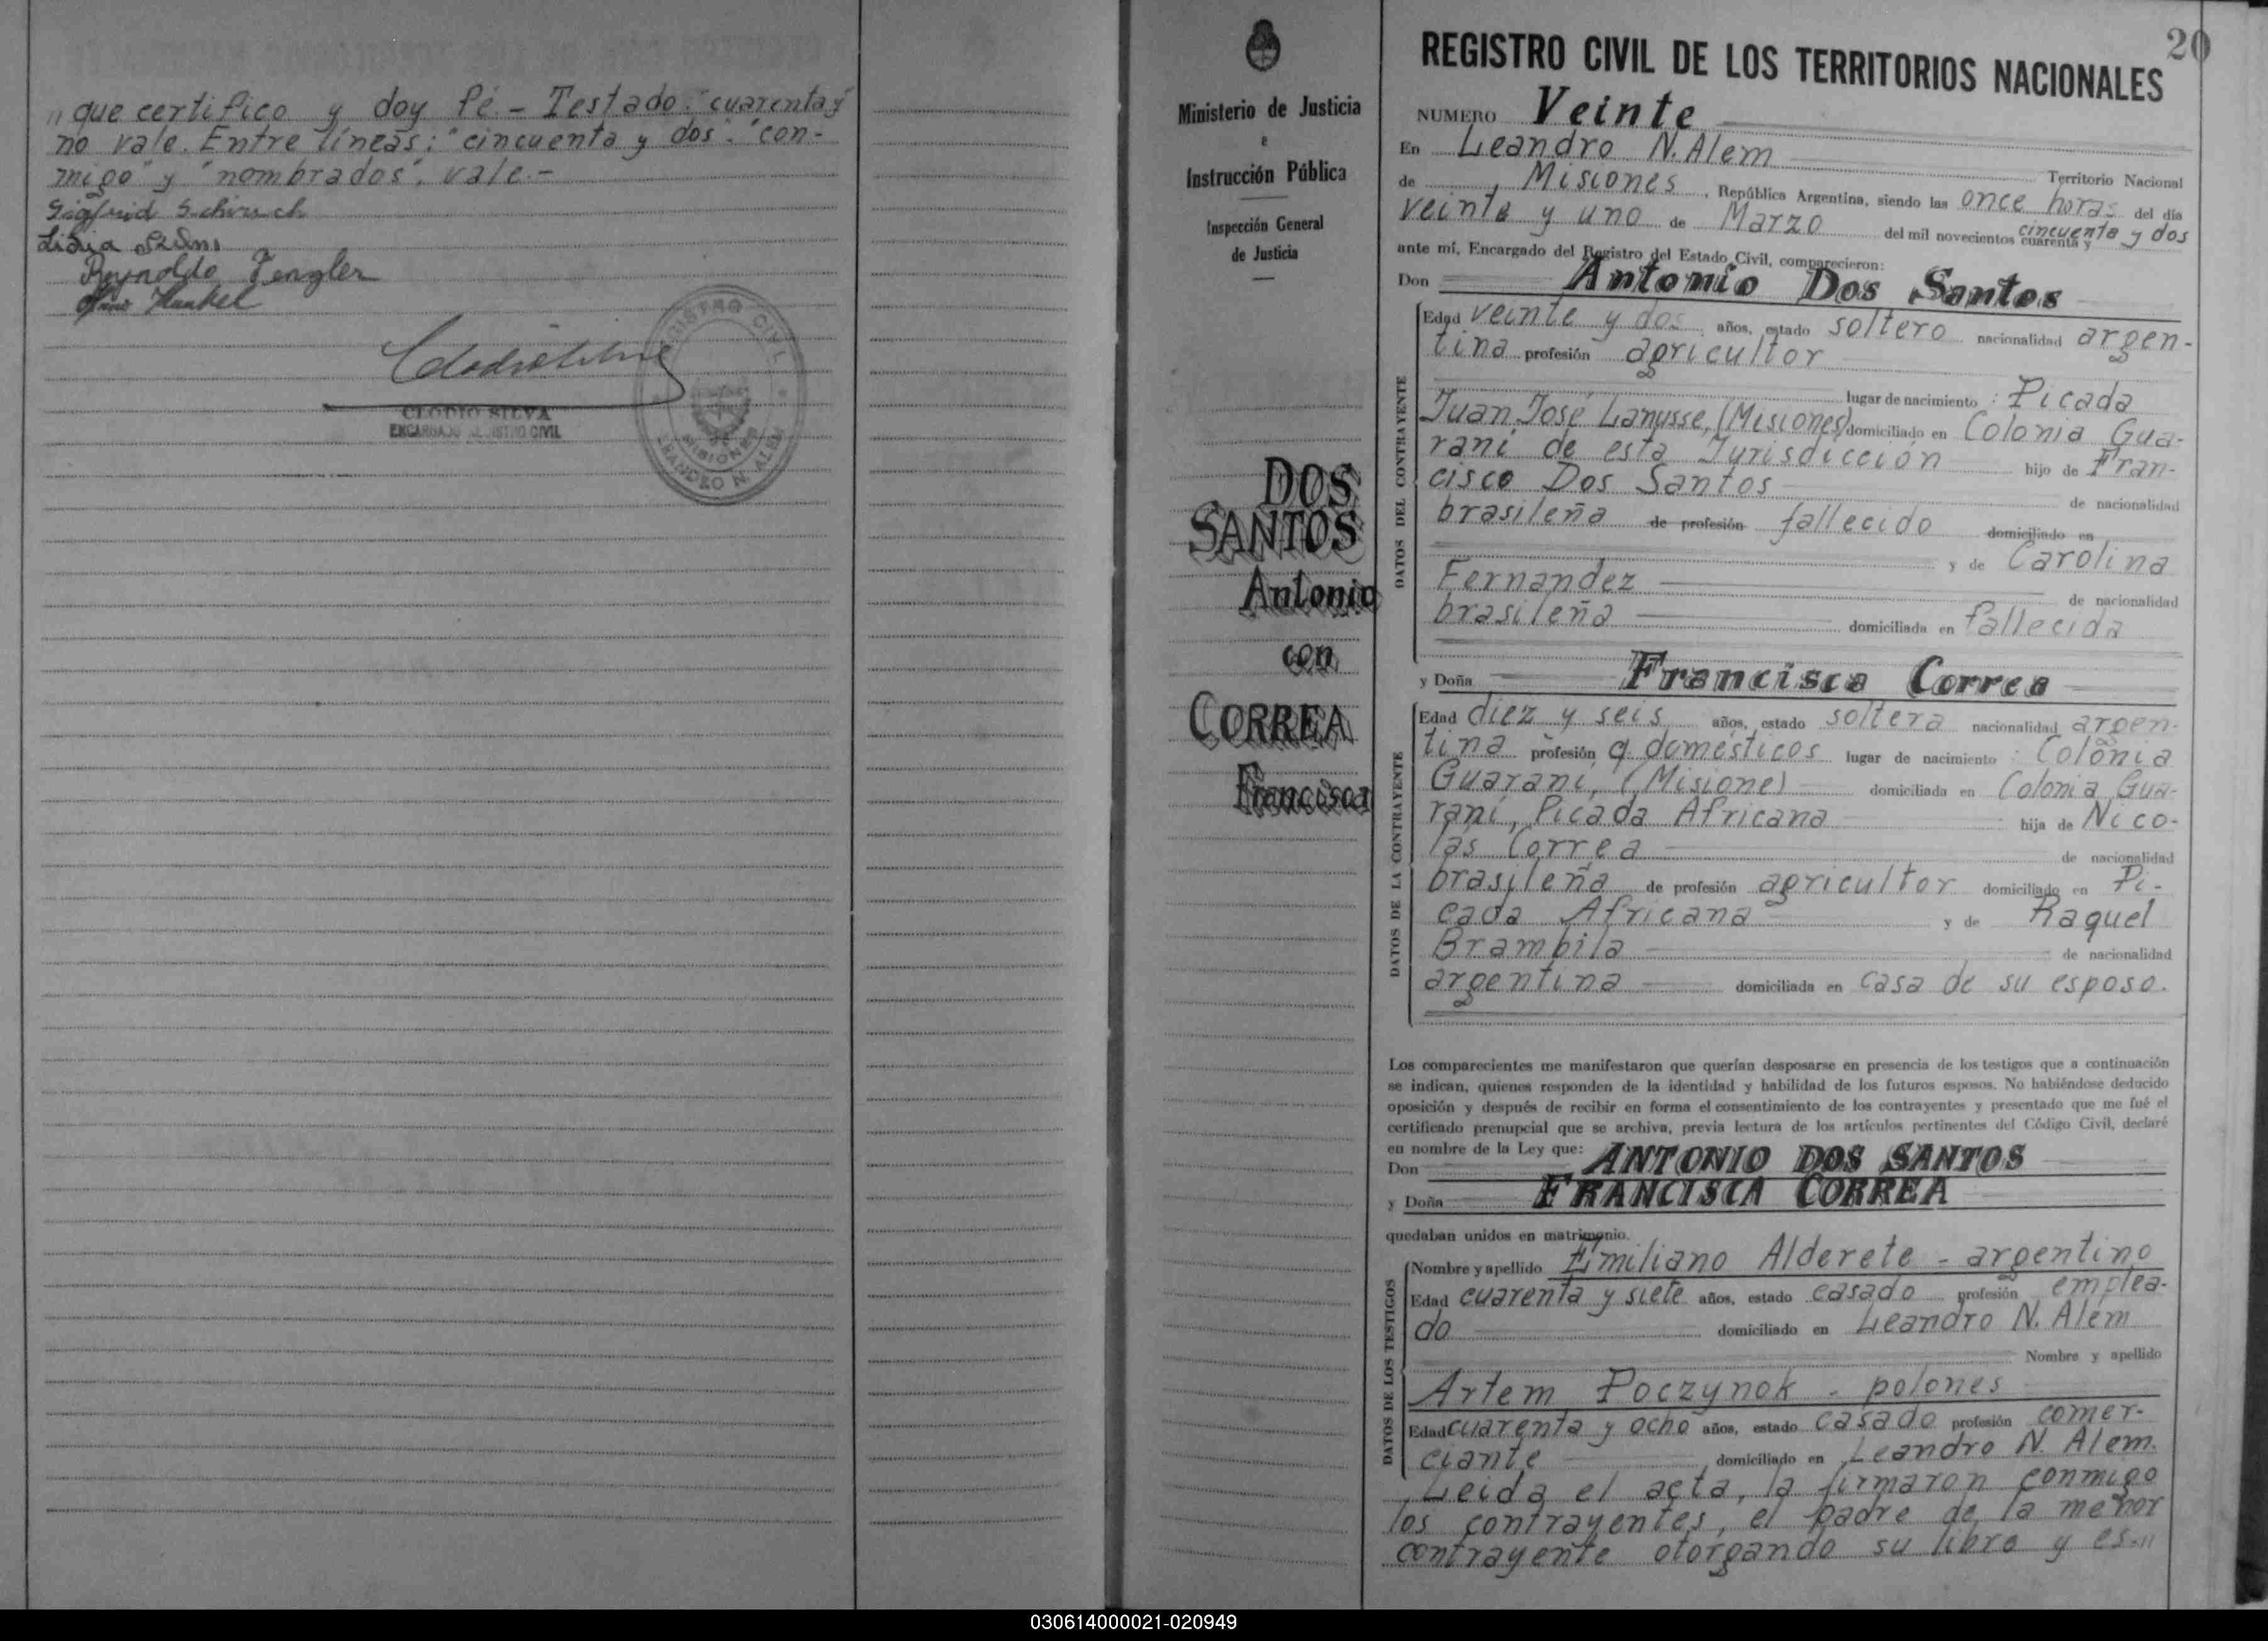 „ que certifico y doy fé.- Testado: "cuarenta y"
no vale. Entre líneas: "cincuenta y dos". "con-
migo" y "nombrados". vale.-
Sigfrid
Lidia
Reynoldo Fengler
Hunkel
CLODIO SILVA
ENCARGADO REGISTRO CIVIL
REGISTRO CIVIL
MISIONES
LEANDRO N. ALEM
Ministerio de Justicia
e
Instrucción Pública
Inspección General
de Justicia
DOS
SANTOS
Antonio
con
CORREA
Francisca
20
REGISTRO CIVIL DE LOS TERRITORIOS NACIONALES
NUMERO Veinte
En Leandro N. Alem Territorio Nacional
de , Misiones , República Argentina, siendo las once horas del día
veinte y uno de Marzo del mil novecientos cuarenta y cincuenta y dos
ante mí, Encargado del Registro del Estado Civil, comparecieron:
Don Antonio Dos Santos
DATOS DEL CONTRAYENTE
Edad veinte y dos años, estado soltero nacionalidad argen-
tina profesión agricultor
lugar de nacimiento : Picada
Juan José Lanusse, (Misiones) domiciliado en Colonia Gua-
raní de esta Jurisdicción hijo de Fran-
cisco Dos Santos de nacionalidad
brasileña de profesión fallecido domiciliado en
y de Carolina
Fernandez de nacionalidad
brasileña domiciliada en fallecida
y Doña Francisca Correa
DATOS DE LA CONTRAYENTE
Edad diez y seis años, estado soltera nacionalidad argen-
tina profesión q. domésticos lugar de nacimiento : Colonia
Guaraní, (Misiones) domiciliada en Colonia Gua-
raní, Picada Africana hija de Nico-
lás Correa de nacionalidad
brasileña de profesión agricultor domiciliado en Pi-
cada Africana y de Raquel
Brambila de nacionalidad
argentina domiciliada en casa de su esposo.
Los comparecientes me manifestaron que querían desposarse en presencia de los testigos que a continuación
se indican, quienes responden de la identidad y habilidad de los futuros esposos. No habiéndose deducido
oposición y después de recibir en forma el consentimiento de los contrayentes y presentado que me fué el
certificado prenupcial que se archiva, previa lectura de los artículos pertinentes del Código Civil, declaré
en nombre de la Ley que:
Don ANTONIO DOS SANTOS
y Doña FRANCISCA CORREA
quedaban unidos en matrimonio.
DATOS DE LOS TESTIGOS
Nombre y apellido Emiliano Alderete - argentino
Edad cuarenta y siete años, estado casado profesión emplea-
do domiciliado en Leandro N. Alem
Nombre y apellido
Artem Poczynok - polones
Edad cuarenta y ocho años, estado casado profesión comer-
ciante domiciliado en Leandro N. Alem.
Leida el acta, la firmaron conmigo
los contrayentes, el padre de la menor
contrayente otorgando su libre y es-„
030614000021-020949